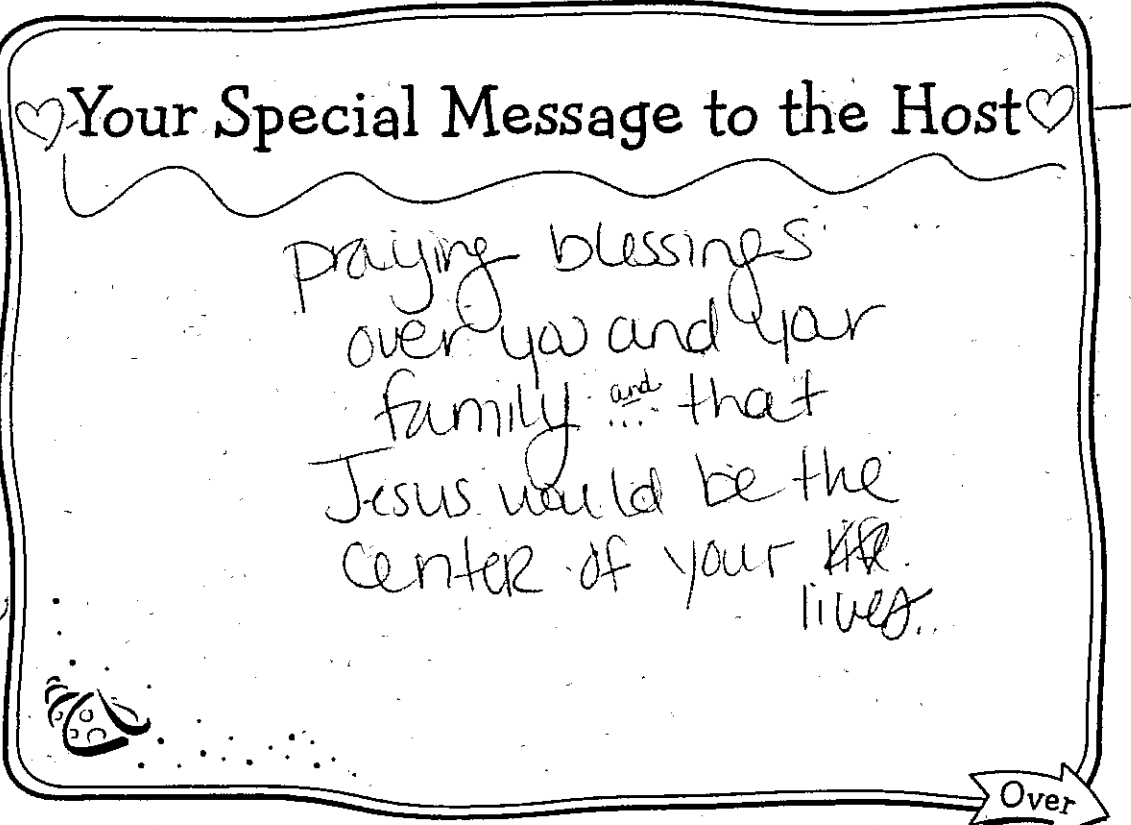 Your Special Message to the Host
praying blessings
over you and your
family and ... that
Jesus would be the
center of your life.
lives..
Over